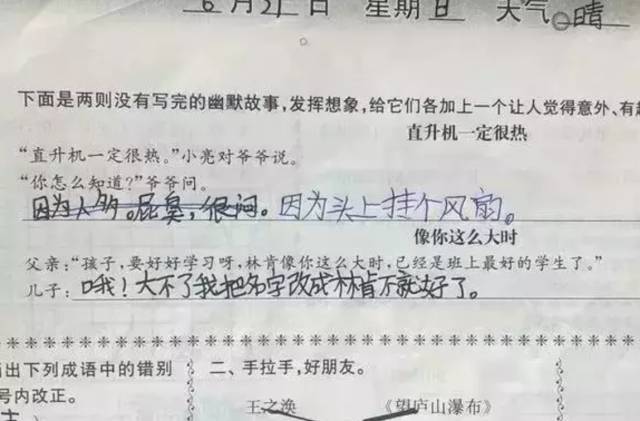 6月21日 星期日 天气 晴
下面是两则没有写完的幽默故事，发挥想象，给它们各加上一个让人觉得意外、有
直升机一定很热
“直升机一定很热。”小亮对爷爷说。
“你怎么知道？”爷爷问。
因为人多。屁臭，很闷。因为头上挂个风扇。
像你这么大时
父亲：“孩子，要好好学习呀，林肯像你这么大时，已经是班上最好的学生了。”
儿子：哦！大不了我把名字改成林肯不就好了。
出下列成语中的错别 二、手拉手，好朋友。
号内改正。
王之涣 《望庐山瀑布》